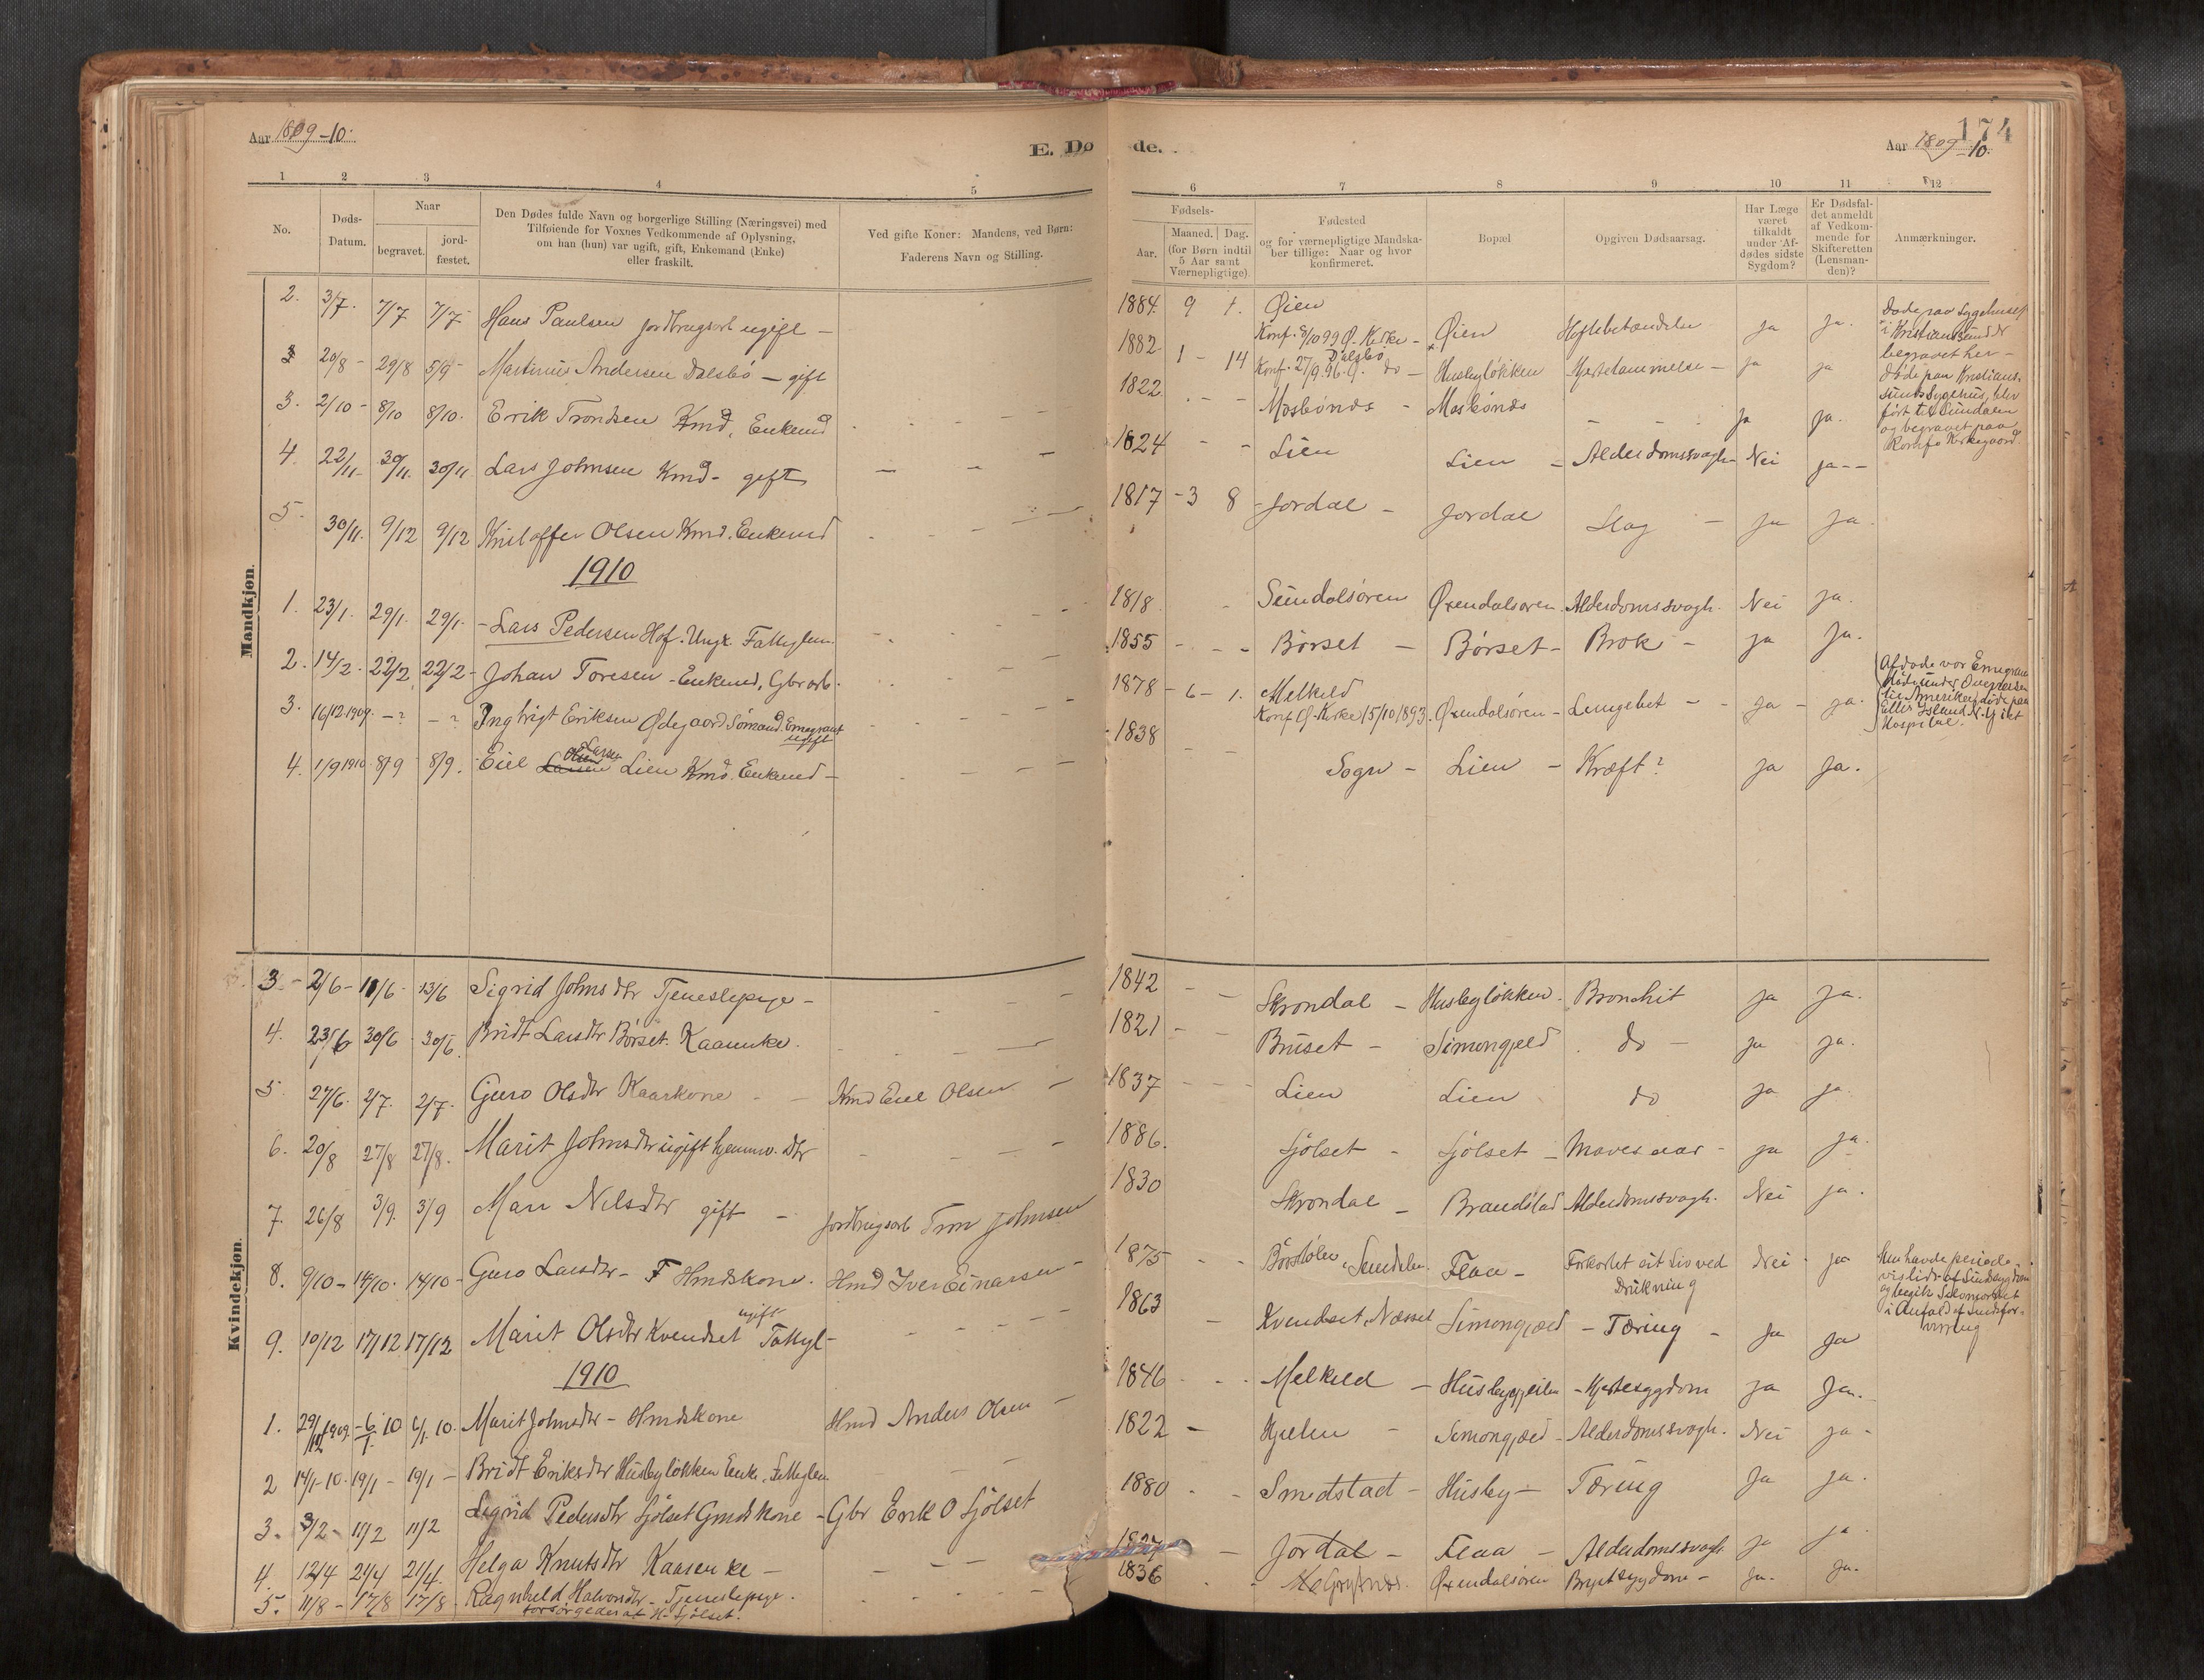 Aar 1809-10.
E. Dø
de.
Aar 1809-10.
174
1 2 3 4 5 6 7 8 9 10 11 12
No.
Døds-
Datum.
Naar
begravet.
jord-
fæstet.
Den Dødes fulde Navn og borgerlige Stilling (Næringsvei) med
Tilføiende for Voxnes Vedkommende af Oplysning,
om han (hun) var ugift, gift, Enkemand (Enke)
eller fraskilt.
Ved gifte Koner: Mandens, ved Børn:
Faderens Navn og Stilling.
Fødsels-
Aar.
Maaned.
Dag.
(for Børn indtil
5 Aar samt
Værnepligtige).
Fødested
og for værnepligtige Mandska-
ber tillige: Naar og hvor
konfirmeret.
Bopæl
Opgiven Dødsaarsag.
Har Læge
været
tilkaldt
under Af-
dødes sidste
Sygdom?
Er Dødsfal-
det anmeldt
af Vedkom-
mende for
Skifteretten
(Lensman-
den)?
Anmærkninger.
Mandkjøn.
2. 3/7. 7/7 7/7 Hans Paulsen jordbrugsarb ugift - 1884. 9 1. Øien
Konf. 8/10 99 Ø. Kirke - Øien Hoftebetændelse ja ja.
Døde paa Sygehuset
i Kristiansund
begravet her -
3 20/8 - 29/8 5/9 - Martinus Andersen Dalsbö - gift 1882 1 - 14 Dalsbö
Konf. 27/9. 96. Ø. do - Husbyløkken Hjertelammelse - ja ja
Døde paa Kristians-
sunds Sygehus, blev
ført til Sundalen
og begravet paa
Romfo Kirkegaard
3. 2/10 - 8/10 8/10. Erik Trondsen Kmd, Enkemd 1822 Mosbönæs - Mosbönæs - - ja ja.
4. 22/11. 30/11. 30/11 Lars Johnsen Kmd - gift 1824 - - Lien Lien - Alderdomssvagh - Nei ja - -
5. 30/11. 9/12 9/12 Kristoffer Olsen Kmd. Enkemd 1817 - 3 8 - Jordal - Jordal Slag - ja ja.
1910
1. 23/1. 29/1. 29/1. - Lars Pedersen Hof. Ungk. Fattiglem. 1818. Sundalsören Øxendalsøren. Alderdomssvagh. Nei ja.
2. 14/2. 22/2 22/2 - Johan Toresen - Enkemd, Gbrarb. 1855 - Børset - Børset - Brok - ja ja.
3. 16/12.1909. - ? - ? Ingbrigt Eriksen Ødegaard Sömand. Emigrant
ugift
1878 - 6 - 1. Melkild
Konf Ø-Kirke 15/10 1893. Øxendalsøren - Lungebet - - ja - ja.
Afdøde var Emigrant
Døde under Overreisen
til Amerika, døde paa
Ellis Island N.Y. i et
Hospital.
4. 1/9 1910. 8/9 8/9. Eiel Larsen Olsen Larsen Lien Kmd. Enkemd - 1838 - - Sogn - Lien - Kræft? ja ja.
Kvindekjøn.
3. - 2/6 - 11/6 - 13/6 Sigrid Johnsdtr Tjenestepige - 1842 - Skrondal - Husbyløkken. Bronchit ja ja.
4. 23/6 30/6 30/6. Bridt Larsdtr Börset. Kaarenke. 1821 - - Bruset - Simongjeld . do - ja ja.
5. 27/6. 2/7. 2/7. Guro Olsdtr Kaarkone - - Kmd Eiel Olsen - 1837 - - Lien Lien do ja ja
6. 20/8 27/8 27/8. Marit Johnsdtr ugift hjemmv. dtr 1886. Sjölset - Sjölset - Mavesaar - ja ja.
7. 26/8 3/9. 3/9 Mari Nilsdtr gift - Jordbrugsarb Tron Johnsen 1830 Skrondal - Brandstad Alderdomssvagh. Nei ja.
8. 9/10 - 14/10. 14/10 - Guro Larsdtr - F Hmdskone. Hmd Iver Einarsen - 1875 Sundalen. Flaa - Forkortet sit Liv ved
Drukning Nei - ja
Hun havde periode-
vis lidt af Sindssygdom
og begik Selvmordet
i Anfald af Sindsfor-
virring
9. 10/12 17/12 17/12 Marit Olsdtr Kvendset ugift Fattigl - 1863 - Kvendset, Næsset Simongjeld - Tæring - ja ja
1910
1. 29/12 1909. - 6/1. 10 6/1. 10. Marit Johnsdtr - Hmdskone Hmd Anders Olsen - 1846 Melkild - Husbygjeilen - Hjertesygdom ja ja.
2 14/1 10. 19/1 - 19/1 - Bridt Eriksdtr Husbyløkken Enke, Fattiglem 1822 - Hjelen - Simongjeld - Alderdomssvagh. Nei ja -
3. 3/2 - 11/2 11/2 Sigrid Pedersdtr Sjölset Gmdskone - Gbr Erik O Sjölset 1880 Smidstad - Husby - Tæring ja ja.
4. 12/4 21/4 21/4. Helga Knutsdtr Kaarenke - - Jordal - Flaa - Alderdomssvagh ja ja.
5. 11/8 - 17/8 17/8. Ragnhild Halvorsdtr - Tjenestepige.
forsørgedes af H. Sjölset.
1836 Øxendalsøren Brystsygdom - ja. ja.